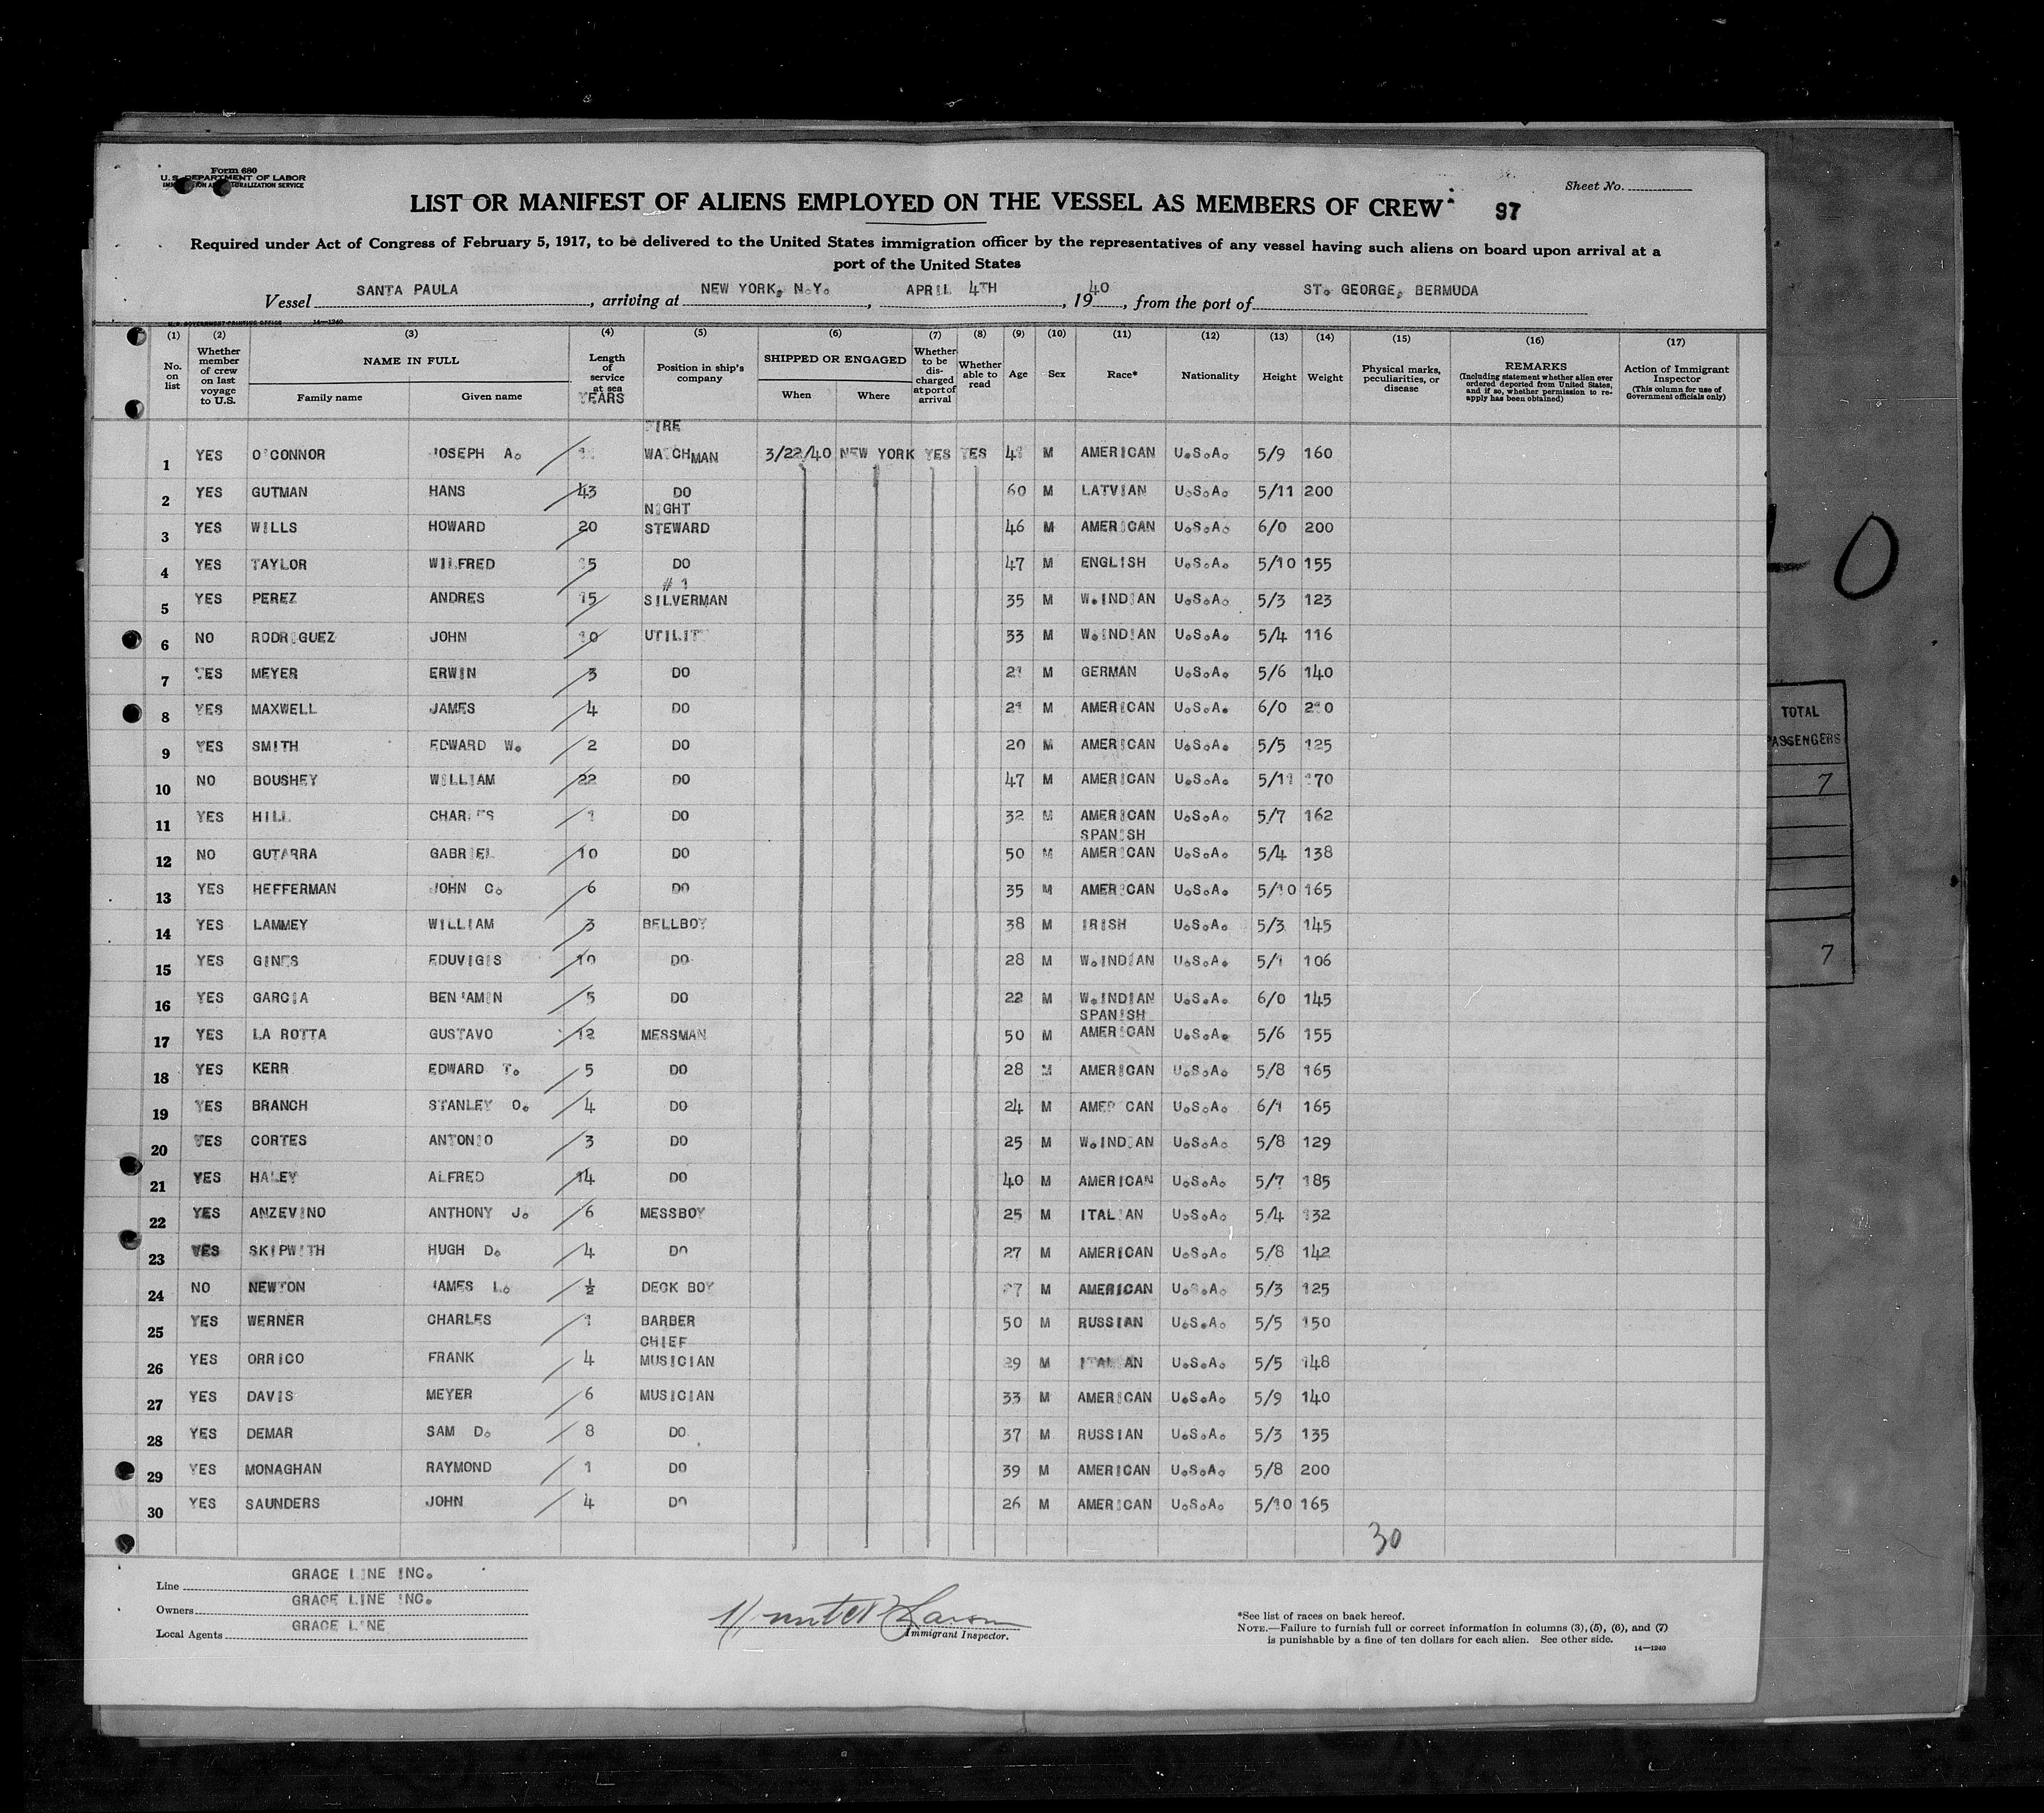 Form 680
U. S. DEPARTMENT OF LABOR
IMMIGRATION AND NATURALIZATION SERVICE
Sheet No.
LIST OR MANIFEST OF ALIENS EMPLOYED ON THE VESSEL AS MEMBERS OF CREW 97
Required under Act of Congress of February 5, 1917, to be delivered to the United States immigration officer by the representatives of any vessel having such aliens on board upon arrival at a
port of the United States
Vessel SANTA PAULA, arriving at NEW YORK, N.Y., APRIL 4TH, 1940, from the port of ST. GEORGE, BERMUDA
U. S. GOVERNMENT PRINTING OFFICE 14—1240
(1) (2) (3) (4) (5) (6) (7) (8) (9) (10) (11) (12) (13) (14) (15) (16) (17)
No. on list
Whether member of crew on last voyage to U.S.
NAME IN FULL
Family name
Given name
Length of service at sea
YEARS
Position in ship's company
SHIPPED OR ENGAGED
When
Where
Whether to be discharged at port of arrival
Whether able to read
Age
Sex
Race*
Nationality
Height
Weight
Physical marks, peculiarities, or disease
REMARKS
(Including statement whether alien ever ordered deported from United States, and if so, whether permission to reapply has been obtained)
Action of Immigrant Inspector
(This column for use of Government officials only)
1 YES O'CONNOR JOSEPH A. FIRE WATCHMAN 3/22/40 NEW YORK YES YES M AMERICAN U.S.A. 5/9 160
2 YES GUTMAN HANS 43 DO 60 M LATVIAN U.S.A. 5/11 200
3 YES WILLS HOWARD 20 NIGHT STEWARD 46 M AMERICAN U.S.A. 6/0 200
4 YES TAYLOR WILFRED 15 DO 47 M ENGLISH U.S.A. 5/10 155
5 YES PEREZ ANDRES 15 #1 SILVERMAN 35 M W.INDIAN U.S.A. 5/3 123
6 NO RODRIGUEZ JOHN 10 UTILITY 33 M W.INDIAN U.S.A. 5/4 116
7 YES MEYER ERWIN 3 DO 21 M GERMAN U.S.A. 5/6 140
8 YES MAXWELL JAMES 4 DO 21 M AMERICAN U.S.A. 6/0 210
9 YES SMITH EDWARD W. 2 DO 20 M AMERICAN U.S.A. 5/5 125
10 NO BOUSHEY WILLIAM 22 DO 47 M AMERICAN U.S.A. 5/11 170
11 YES HILL CHARLES 1 DO 32 M AMERICAN U.S.A. 5/7 162
12 NO GUTARRA GABRIEL 10 DO 50 M SPANISH AMERICAN U.S.A. 5/4 138
13 YES HEFFERMAN JOHN C. 6 DO 35 M AMERICAN U.S.A. 5/10 165
14 YES LAMMEY WILLIAM 3 BELLBOY 38 M IRISH U.S.A. 5/3 145
15 YES GINES EDUVIGIS 10 DO 28 M W.INDIAN U.S.A. 5/1 106
16 YES GARCIA BENJAMIN 5 DO 22 M W.INDIAN U.S.A. 6/0 145
17 YES LA ROTTA GUSTAVO 12 MESSMAN 50 M SPANISH AMERICAN U.S.A. 5/6 155
18 YES KERR EDWARD T. 5 DO 28 M AMERICAN U.S.A. 5/8 165
19 YES BRANCH STANLEY O. 4 DO 24 M AMERICAN U.S.A. 6/1 165
20 YES CORTES ANTONIO 3 DO 25 M W.INDIAN U.S.A. 5/8 129
21 YES HALEY ALFRED 14 DO 40 M AMERICAN U.S.A. 5/7 185
22 YES ANZEVINO ANTHONY J. 6 MESSBOY 25 M ITALIAN U.S.A. 5/4 132
23 YES SKIPWITH HUGH D. 4 DO 27 M AMERICAN U.S.A. 5/8 142
24 NO NEWTON JAMES L. ½ DECK BOY 27 M AMERICAN U.S.A. 5/3 125
25 YES WERNER CHARLES 1 BARBER 50 M RUSSIAN U.S.A. 5/5 150
26 YES ORRICO FRANK 4 CHIEF MUSICIAN 29 M ITALIAN U.S.A. 5/5 148
27 YES DAVIS MEYER 6 MUSICIAN 33 M AMERICAN U.S.A. 5/9 140
28 YES DEMAR SAM D. 8 DO 37 M RUSSIAN U.S.A. 5/3 135
29 YES MONAGHAN RAYMOND 1 DO 39 M AMERICAN U.S.A. 5/8 200
30 YES SAUNDERS JOHN 4 DO 26 M AMERICAN U.S.A. 5/10 165
30
Line GRACE LINE INC.
Owners GRACE LINE INC.
Local Agents GRACE LINE
Immigrant Inspector.
*See list of races on back hereof.
NOTE.—Failure to furnish full or correct information in columns (3), (5), (6), and (7)
is punishable by a fine of ten dollars for each alien. See other side.
14—1240
0
TOTAL
PASSENGERS
7
7